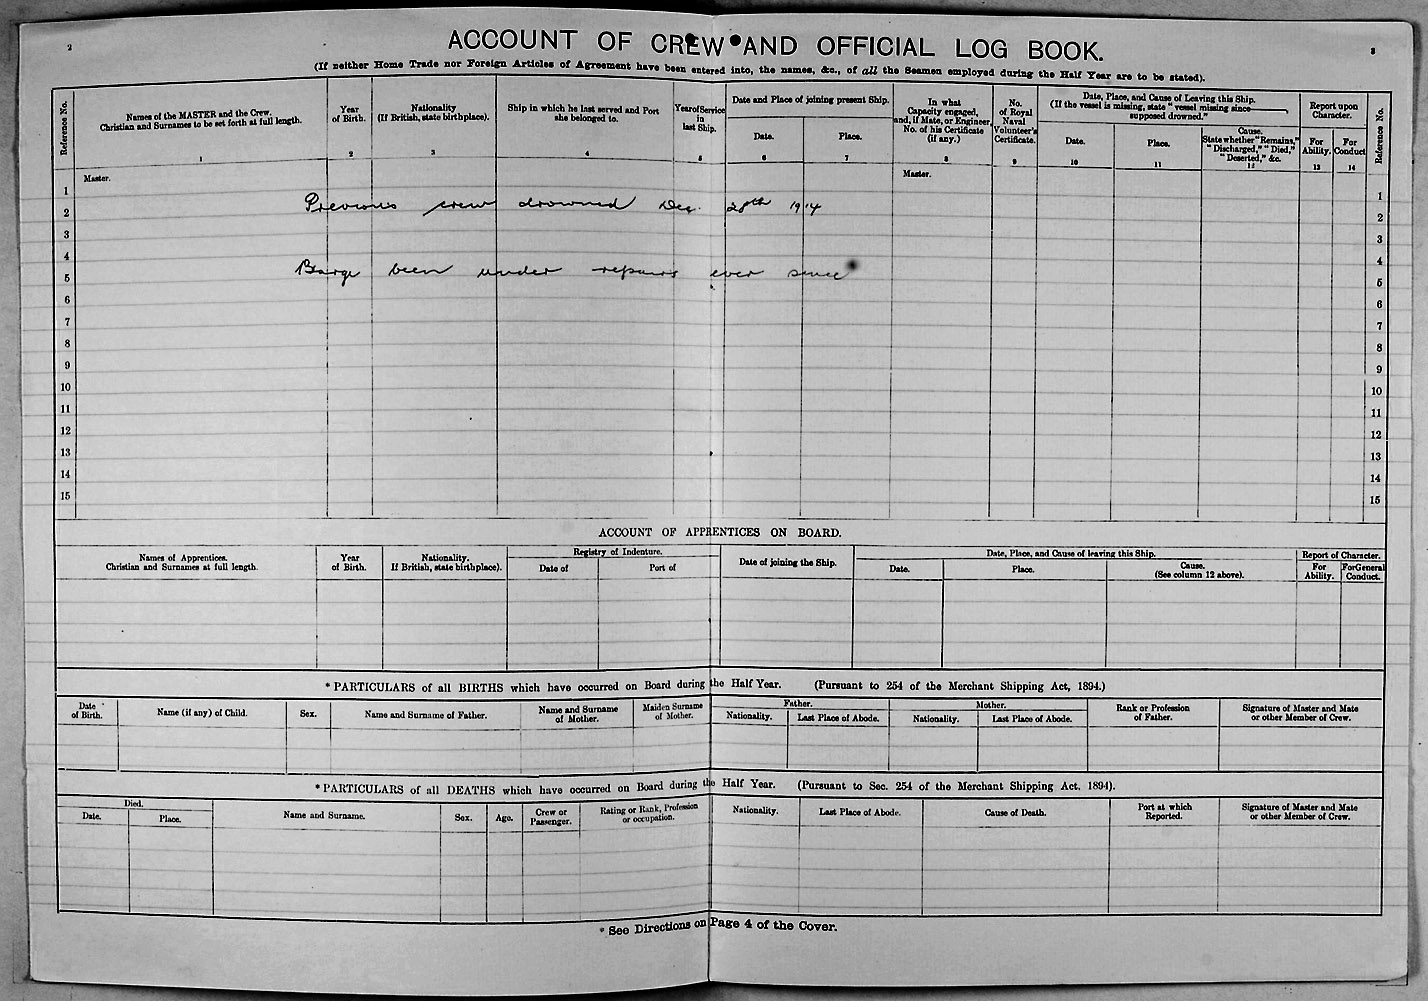 2
3
ACCOUNT OF CREW AND OFFICIAL LOG BOOK.
(If neither Home Trade nor Foreign Articles of Agreement have been entered into, the names, &c., of all the Seamen employed during the Half Year are to be stated).
Reference No.
Names of the MASTER and the Crew.
Christian and Surnames to be set forth at full length.
1
Year
of Birth.
2
Nationality
(If British, state birthplace).
3
Ship in which he last served and Port
she belonged to.
4
Year of Service
in
last Ship.
5
Date and Place of joining present Ship.
Date.
6
Place.
7
In what
Capacity engaged,
and, if Mate, or Engineer,
No. of his Certificate
(if any.)
8
No.
of Royal
Naval
Volunteer's
Certificate.
9
Date, Place, and Cause of Leaving this Ship.
(If the vessel is missing, state "vessel missing since
supposed drowned."
Date.
10
Place.
11
Cause.
State whether "Remains,"
"Discharged," "Died,"
"Deserted," &c.
12
Report upon
Character.
For
Ability.
13
For
Conduct
14
Reference No.
Master.
Master.
1 1
2 Previous crew drowned Dec. 28th 1914 2
3 3
4 4
5 Barge been under repairs ever since 5
6 6
7 7
8 8
9 9
10 10
11 11
12 12
13 13
14 14
15 15
ACCOUNT OF APPRENTICES ON BOARD.
Names of Apprentices.
Christian and Surnames at full length.
Year
of Birth.
Nationality.
If British, state birthplace).
Registry of Indenture.
Date of
Port of
Date of joining the Ship.
Date, Place, and Cause of leaving this Ship.
Date.
Place.
Cause.
(See column 12 above).
Report of Character.
For
Ability.
For General
Conduct.
* PARTICULARS of all BIRTHS which have occurred on Board during the Half Year. (Pursuant to 254 of the Merchant Shipping Act, 1894.)
Date
of Birth.
Name (if any) of Child.
Sex.
Name and Surname of Father.
Name and Surname
of Mother.
Maiden Surname
of Mother.
Father.
Nationality.
Last Place of Abode.
Mother.
Nationality.
Last Place of Abode.
Rank or Profession
of Father.
Signature of Master and Mate
or other Member of Crew.
* PARTICULARS of all DEATHS which have occurred on Board during the Half Year. (Pursuant to Sec. 254 of the Merchant Shipping Act, 1894).
Died.
Date.
Place.
Name and Surname.
Sex.
Age.
Crew or
Passenger.
Rating or Rank, Profession
or occupation.
Nationality.
Last Place of Abode.
Cause of Death.
Port at which
Reported.
Signature of Master and Mate
or other Member of Crew.
* See Directions on Page 4 of the Cover.